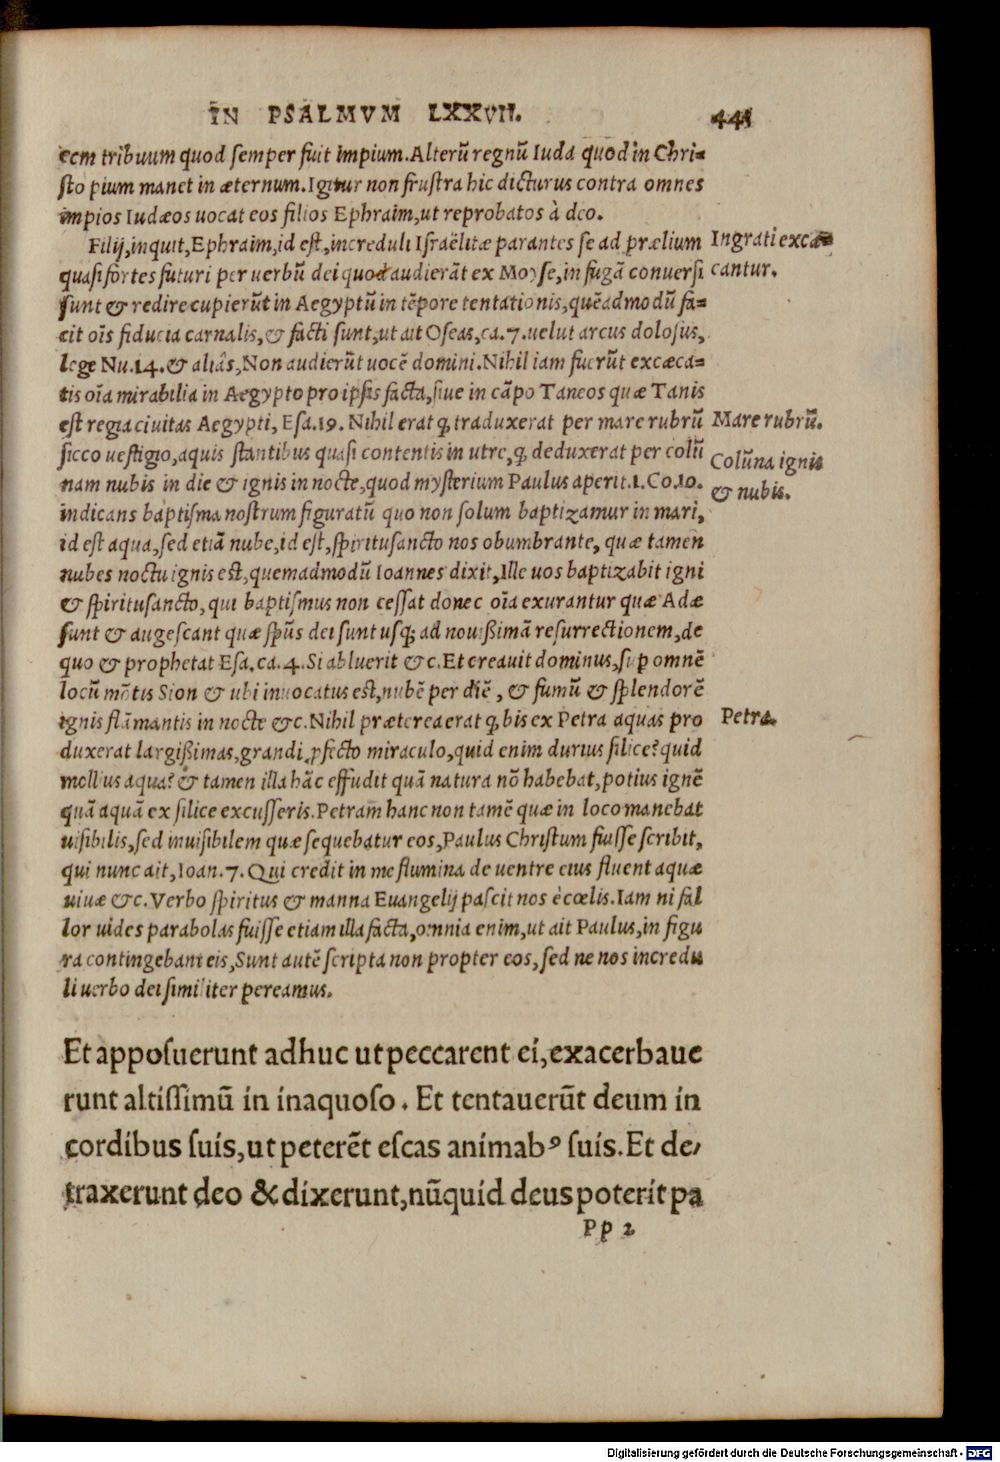 IN PSALMVM LXXVII. 441
cem tribuum quod semper fuit impium. Alterũ regnũ Iuda quod in Chri=
sto pium manet in æternum. Igitur non frustra hic dicturus contra omnes
impios Iudæos uocat eos filios Ephraim, ut reprobatos à deo.
Filij, inquit, Ephraim, id est, increduli Israëlitæ parantes se ad prælium
Ingrati excæ=
quasi fortes futuri per uerbũ dei quod audierãt ex Moyse, in fugã conuersi
cantur.
sunt & redire cupierũt in Aegyptũ in tẽpore tentationis, quẽadmodũ fa=
cit oĩs fiducia carnalis, & facti sunt, ut ait Oseas, ca. 7. uelut arcus dolosus,
lege Nu. 14. & aliâs, Non audierũt uocẽ domini. Nihil iam fuerũt excæca=
tis oĩa mirabilia in Aegypto pro ipsis facta, siue in cãpo Taneos quæ Tanis
est regia ciuitas Aegypti, Esa. 19. Nihil erat ꝗ traduxerat per mare rubrũ
Mare rubrũ.
sicco uestigio, aquis stantibus quasi contentis in utre, ꝗ deduxerat per colũ
Colũna ignis
nam nubis in die & ignis in nocte, quod mysterium Paulus aperit. 1. Co. 10.
& nubis.
indicans baptisma nostrum figuratũ quo non solum baptizamur in mari,
id est aqua, sed etiã nube, id est, spiritusancto nos obumbrante, quæ tamen
nubes noctu ignis est, quemadmodũ Ioannes dixit, Ille uos baptizabit igni
& spiritusancto, qui baptismus non cessat donec oĩa exurantur quæ Adæ
sunt & augescant quæ spũs dei sunt usq; ad nouißimã resurrectionem, de
quo & prophetat Esa, ca. 4. Si abluerit &c. Et creauit dominus, sup omnẽ
locũ mõtis Sion & ubi inuocatus est, nubẽ per diẽ, & fumũ & splendorẽ
ignis flãmantis in nocte &c. Nihil præterea erat ꝗ bis ex Petra aquas pro
Petra.
duxerat largißimas, grandi ꝓfecto miraculo, quid enim durius silice? quid
mollius aqua? & tamen illa hãc effudit quã natura nõ habebat, potius ignẽ
quã aquã ex silice excusseris. Petram hanc non tamẽ quæ in loco manebat
uisibilis, sed inuisibilem quæ sequebatur eos, Paulus Christum fuisse scribit,
qui nunc ait, Ioan. 7. Qui credit in me flumina de uentre eius fluent aquæ
uiuæ &c. Verbo spiritus & manna Euangelij pascit nos è cœlis. Iam ni fal
lor uides parabolas fuisse etiam illa facta, omnia enim, ut ait Paulus, in figu
ra contingebant eis, Sunt autẽ scripta non propter eos, sed ne nos incredu
li uerbo dei similiter pereamus.
Et apposuerunt adhuc ut peccarent ei, exacerbaue
runt altissimũ in inaquoso. Et tentauerũt deum in
cordibus suis, ut peterẽt escas animabꝰ suis. Et de/
traxerunt deo & dixerunt, nũquid deus poterit pa
Pp 2
Digitalisierung gefördert durch die Deutsche Forschungsgemeinschaft - DFG